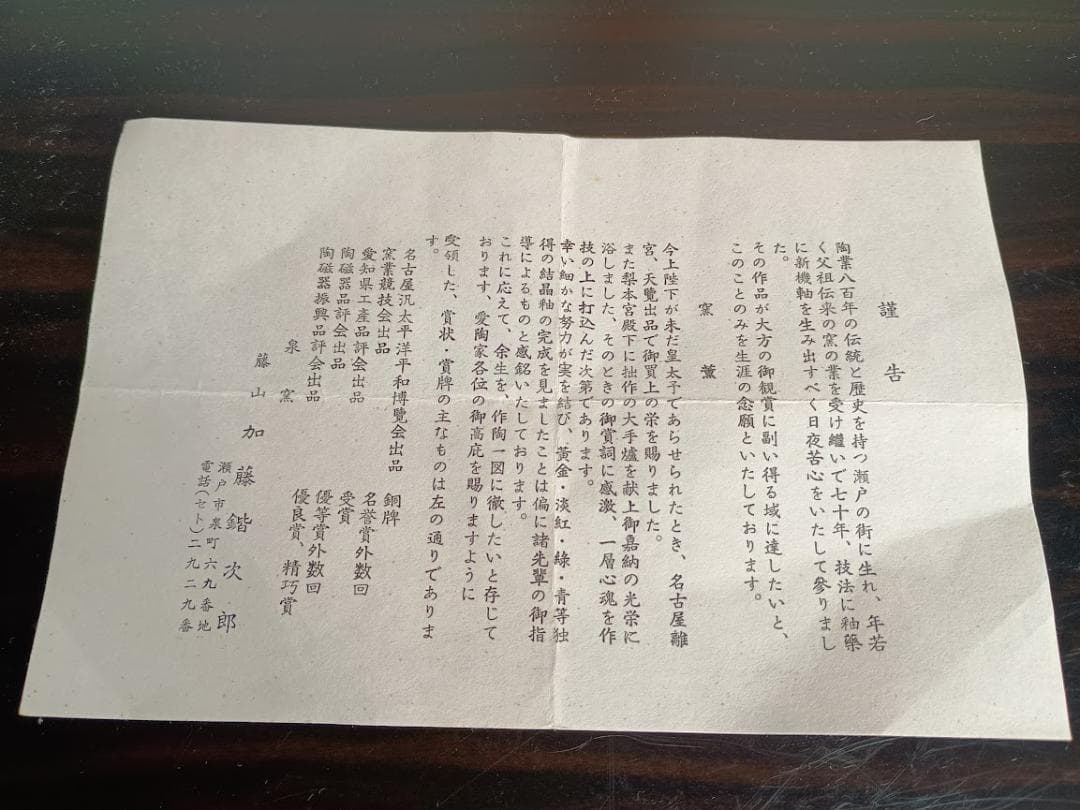 謹告
陶業八百年の伝統と歴史を持つ瀬戸の街に生れ、年若
く父祖伝来の窯の業を受け継いで七十年、技法に釉薬
に新機軸を生み出すべく日夜苦心をいたして参りまし
た。
その作品が大方の御観賞に副い得る域に達したいと、
このことのみを生涯の念願といたしております。
窯薫
今上陛下が未だ皇太子であらせられたとき、名古屋離
宮、天覧出品で御買上の栄を賜りました。
また梨本宮殿下に拙作の大手爐を献上御嘉納の光栄に
浴しました、そのときの御賞詞に感激、一層心魂を作
技の上に打込んだ次第であります。
幸い細かな努力が実を結び、黄金・淡紅・綠・青等独
得の結晶釉の完成を見ましたことは偏に諸先輩の御指
導によるものと感銘いたしております。
これに応えて、余生を、作陶一図に徹したいと存じて
おります、愛陶家各位の御高庇を賜りますように
受領した、賞状・賞牌の主なものは左の通りでありま
す。
名古屋汎太平洋平和博覧会出品 銅牌
窯業競技会出品 名誉賞外数回
愛知県工産品評会出品 受賞
陶磁器品評会出品 優等賞外数回
陶磁器振興品評会出品 優良賞、精巧賞
泉窯
藤山 加藤鍇次郎
瀬戸市泉町六九番地
電話(セト)二九二九番